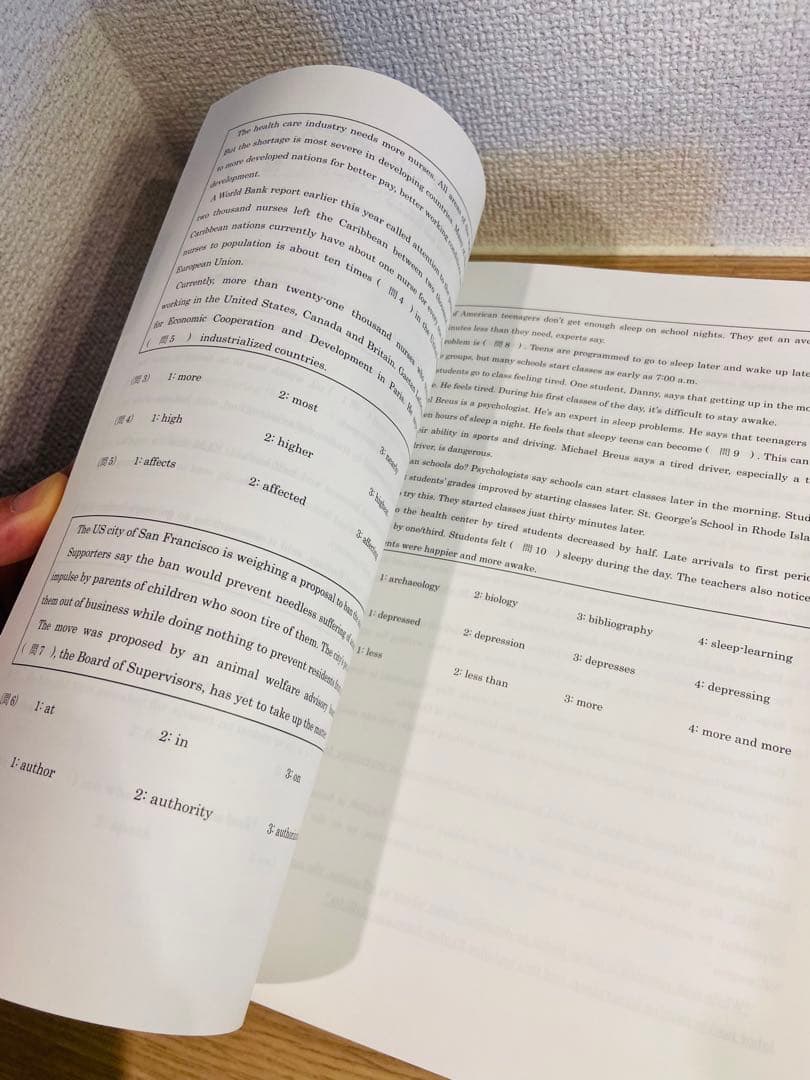 The health care industry needs more nurses. All areas of
But the shortage is most severe in developing countries.
to more developed nations for better pay, better working
development.
A World Bank report earlier this year called attention to
two thousand nurses left the Caribbean between two
Caribbean nations currently have about one nurse for every
nurses to population is about ten times ( 問4 ) in the
European Union.
Currently, more than twenty-one thousand nurses
working in the United States, Canada and Britain.
for Economic Cooperation and Development in Paris.
( 問5 ) industrialized countries.
(問3) 1: more 2: most
(問4) 1: high 2: higher 3: highest
(問5) 1: affects 2: affected 3: affecting
The US city of San Francisco is weighing a proposal to ban the
Supporters say the ban would prevent needless suffering of
impulse by parents of children who soon tire of them. The city's
them out of business while doing nothing to prevent residents
The move was proposed by an animal welfare advisory
( 問7 ), the Board of Supervisors, has yet to take up the
(問6) 1: at 2: in 3: on
1: author 2: authority
of American teenagers don't get enough sleep on school nights. They get an
less than they need, experts say.
is ( 問8 ). Teens are programmed to go to sleep later and wake up
groups, but many schools start classes as early as 7:00 a.m.
students go to class feeling tired. One student, Danny, says that getting up in the
He feels tired. During his first classes of the day, it's difficult to stay awake.
Breus is a psychologist. He's an expert in sleep problems. He says that teenagers
hours of sleep a night. He feels that sleepy teens can become ( 問9 ). This can
ability in sports and driving. Michael Breus says a tired driver, especially a
driver, is dangerous.
schools do? Psychologists say schools can start classes later in the morning.
students' grades improved by starting classes later. St. George's School in Rhode
try this. They started classes just thirty minutes later.
to the health center by tired students decreased by half. Late arrivals to first
by one/third. Students felt ( 問10 ) sleepy during the day. The teachers also
were happier and more awake.
1: archaeology 2: biology 3: bibliography 4: sleep-learning
1: depressed 2: depression 3: depresses 4: depressing
1: less 2: less than 3: more 4: more and more